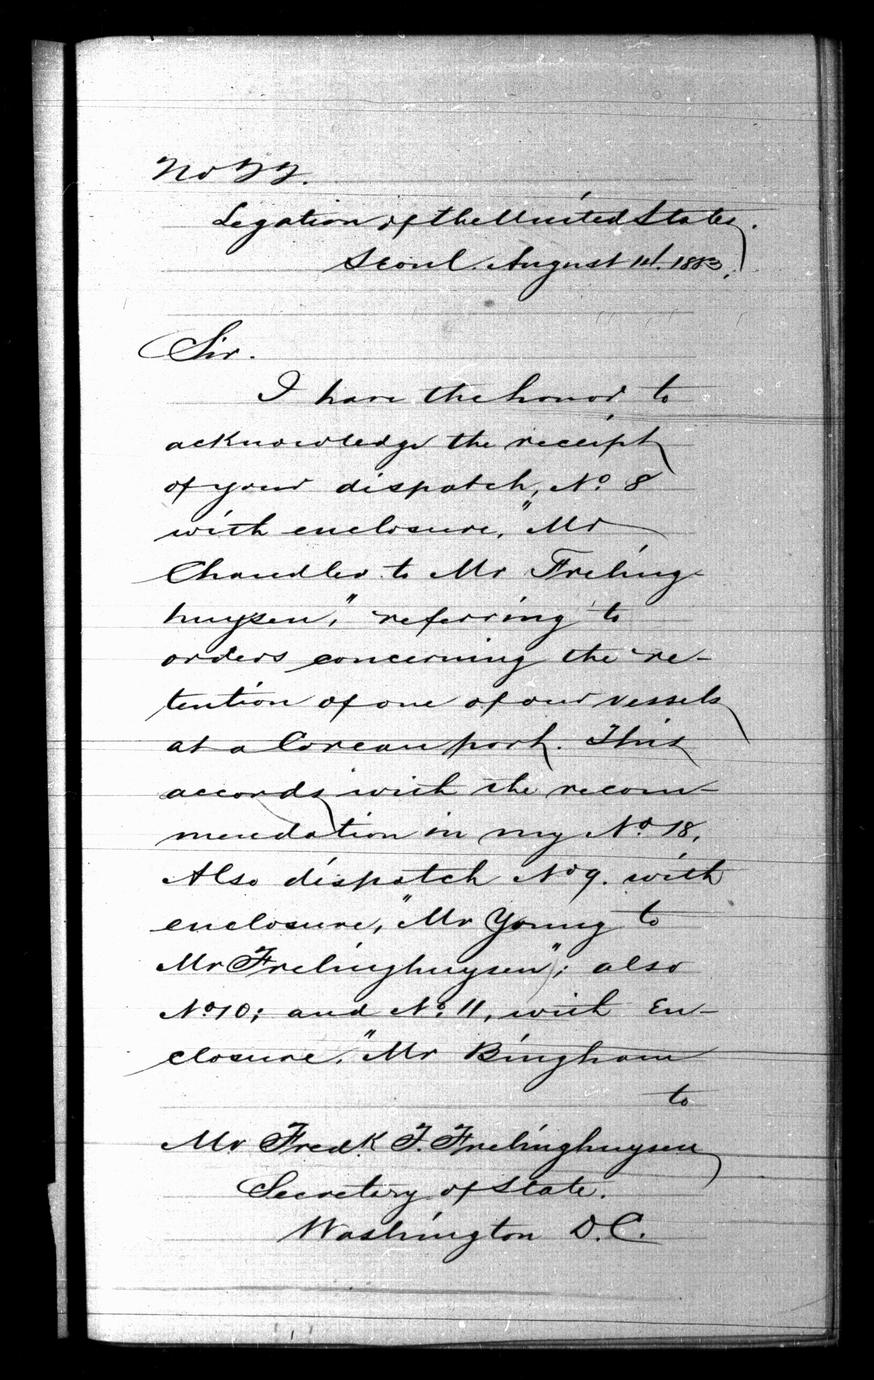 No 22.
Legation of the United States.
Seoul. August 1883.
Sir.
I have the honor to
acknowledge the receipt
of your dispatch, No. 8
with enclosure, "Mr
Chandler to Mr Freling-
huysen," referring to
orders concerning the re-
tention of one of our vessels
at a Corean port. This
accords with the recom-
mendation in my No. 18.
Also dispatch No 9. with
enclosure, "Mr Young to
Mr Frelinghuysen"; also
No. 10; and No. 11, with En-
closure, "Mr Bingham
to
Mr Fredk T. Frelinghuysen
Secretary of State.
Washington D.C.